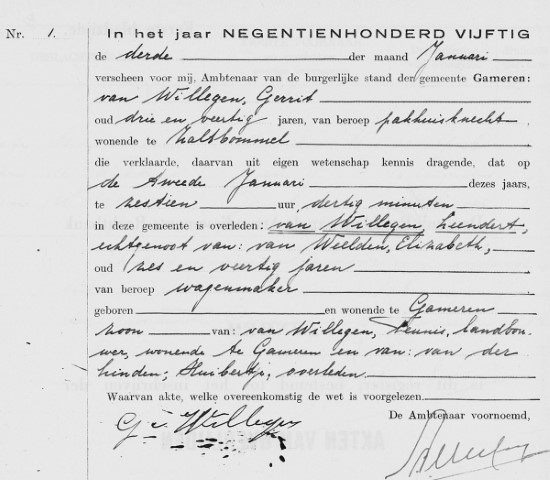 Nr. 1. In het jaar NEGENTIENHONDERD VIJFTIG
de derde der maand Januari
verscheen voor mij, Ambtenaar van de burgerlijke stand der gemeente Gameren:
van Willegen, Gerrit
oud drie en veertig jaren, van beroep pakhuisknecht
wonende te Zaltbommel
die verklaarde, daarvan uit eigen wetenschap kennis dragende, dat op
de tweede Januari dezes jaars,
te zestien uur, dertig minuten
in deze gemeente is overleden: van Willegen, Leendert,
echtgenoot van: van Weelden, Elizabeth,
oud zes en veertig jaren
van beroep wagenmaker
geboren en wonende te Gameren
zoon van: van Willegen, Teunis, landbou-
wer, wonende te Gameren en van: van der
Linden, Huibertje, overleden
Waarvan akte, welke overeenkomstig de wet is voorgelezen.
De Ambtenaar voornoemd,
G. v. Willegen